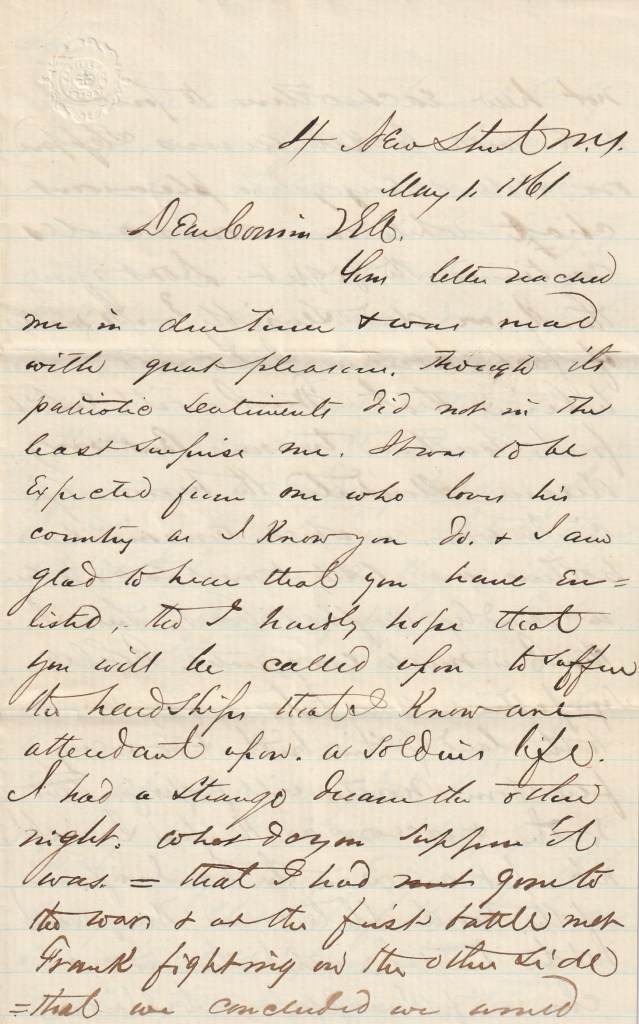 4 New Street N.Y.
May 1. 1861
Dear Cousin
Your letter reached
me in due time & was read
with great pleasure. though its
patriotic sentiments did not in the
least surprise me. It was to be
Expected from one who loves his
country as I Know you do. & I am
glad to hear that you have En=
listed, tho I hardly hope that
you will be called upon to suffer
the hardships that I Know are
attendant upon. a soldiers life.
I had a Strange dream the other
night. what do you suppose it
was. = that I had gone to
the war & at the first battle met
Frank fighting on the other side
= that we concluded we would